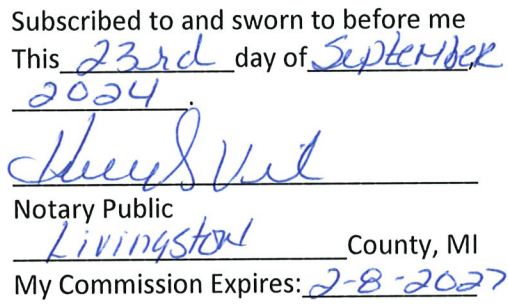 Subscribed to and sworn to before me
This 23rd day of September,
2024.
Notary Public
Livingston County, MI
My Commission Expires: 2-8-2027